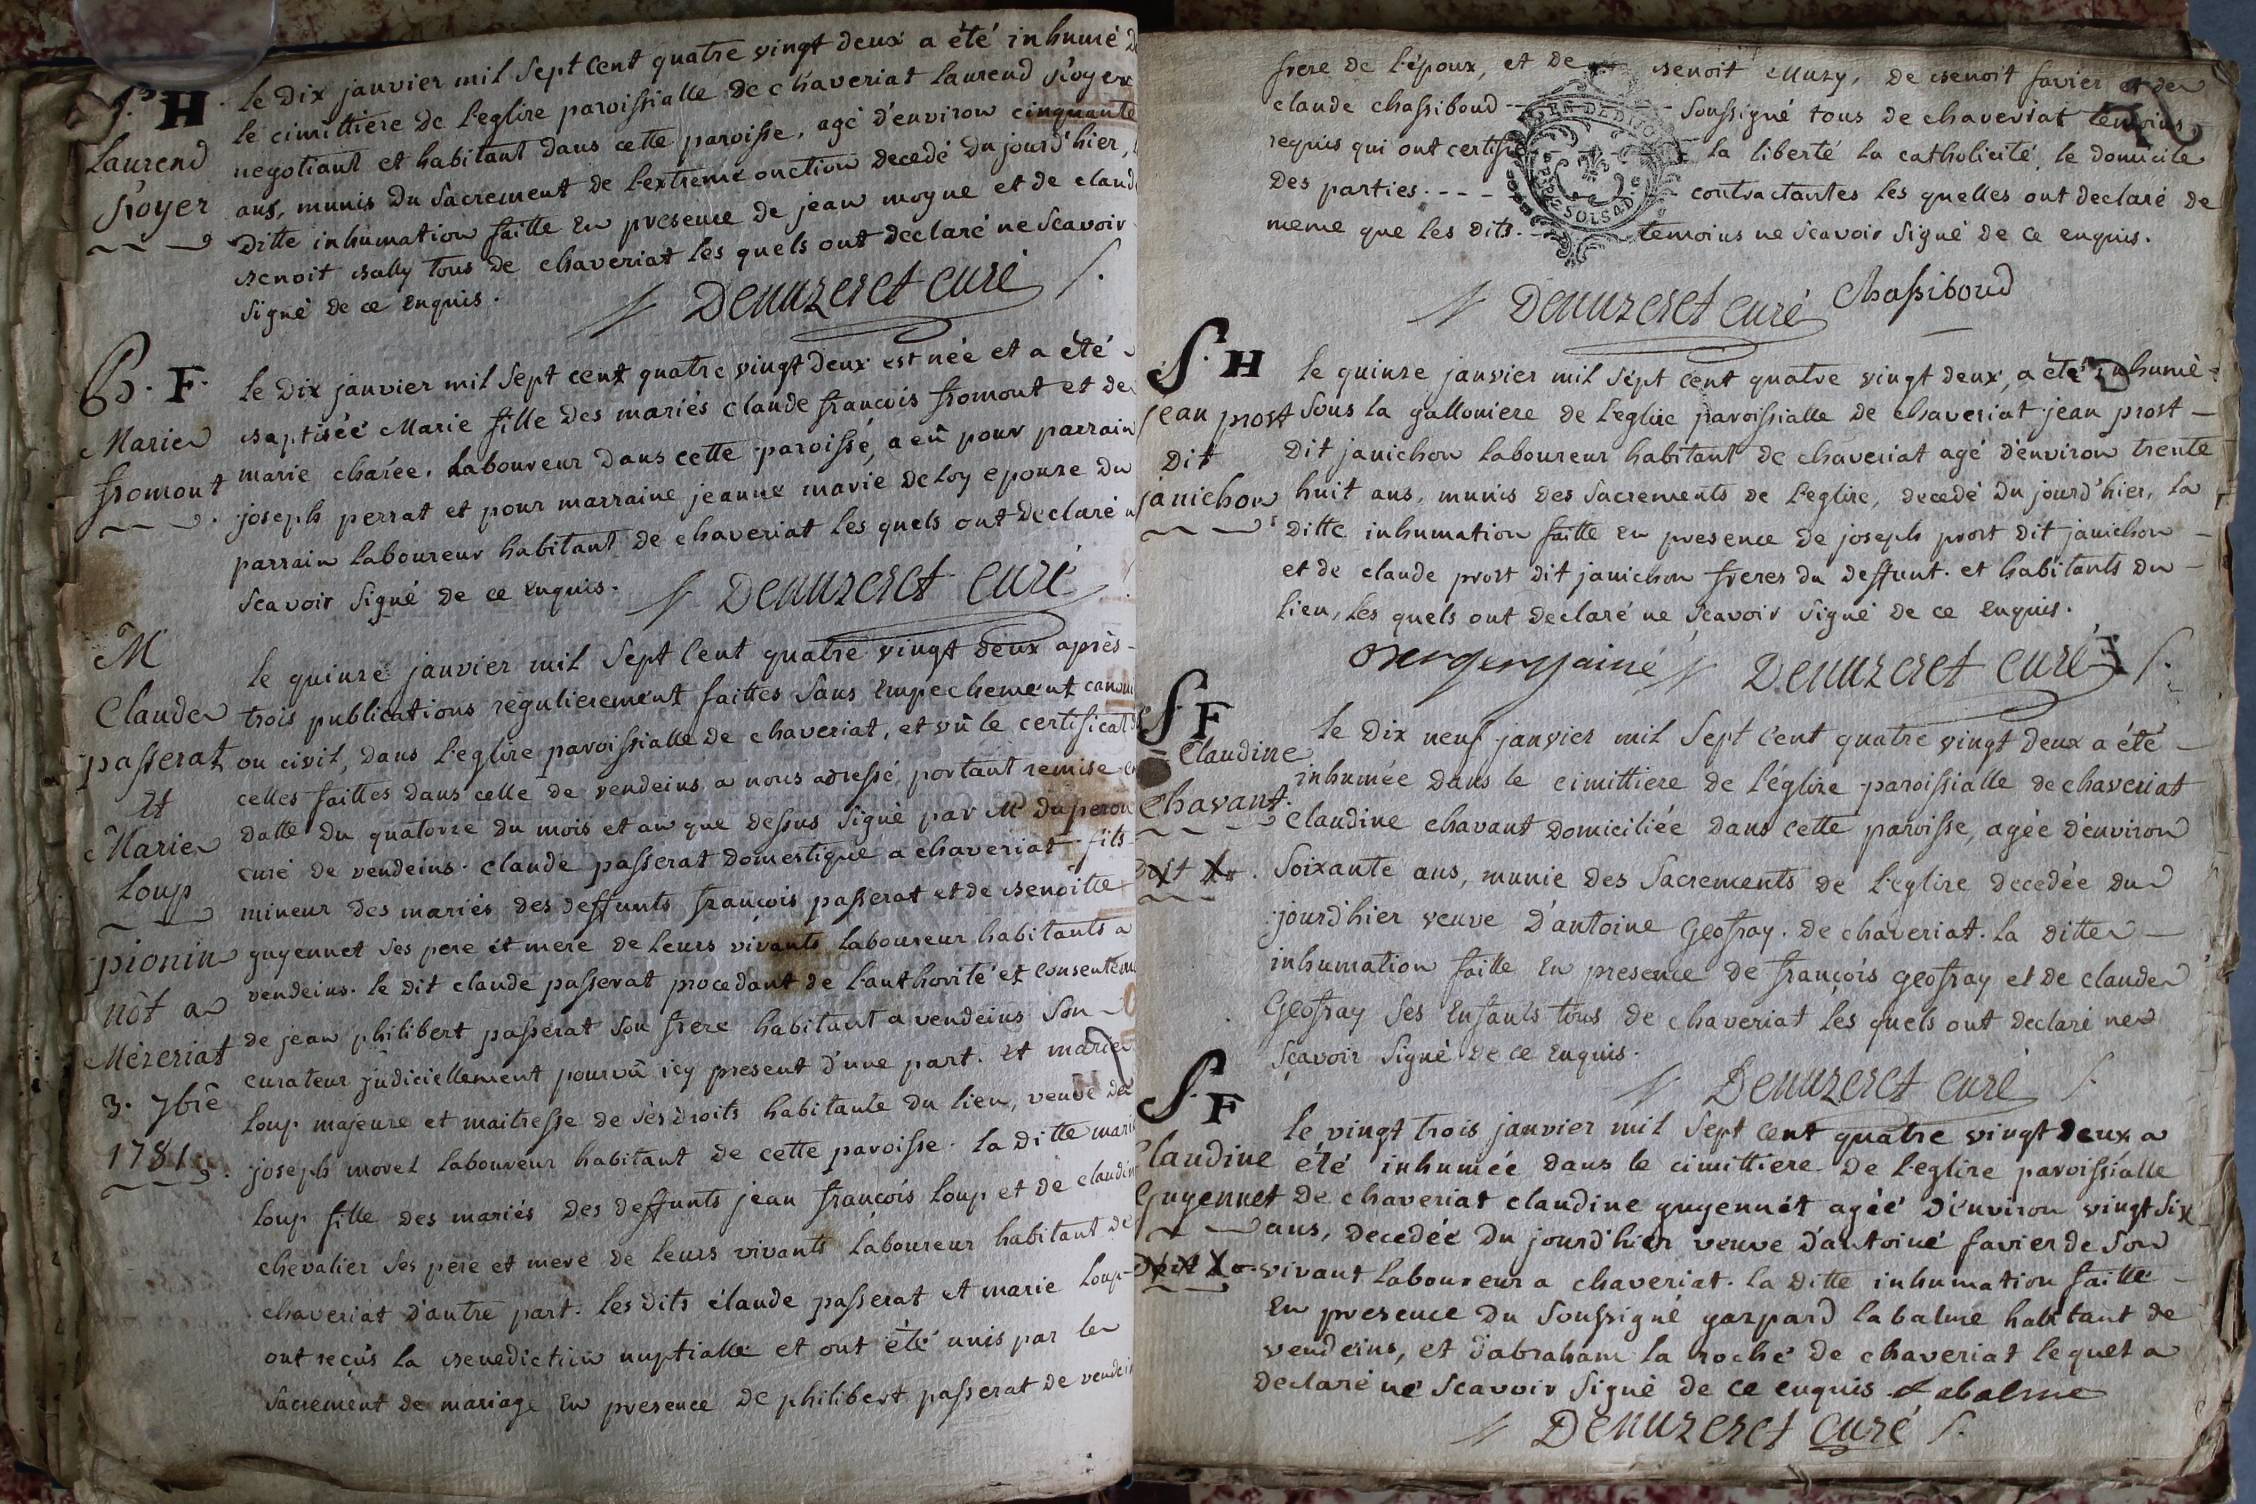 S. H
Laurend
Royer
le dix janvier mil sept cent quatre vingt deux a été inhumé d
le cimittiere de l'eglise paroissialle de chaveriat laurend Royer
negotiant et habitant dans cette paroisse, agé d'environ cinquante
ans, munis du sacrement de l'extreme onction decedé du jourd'hier,
ditte inhumation faitte en presence de jean moyne et de claud
Benoit Bally tous de chaveriat les quels ont declaré ne scavoir
signé de ce enquis.
Denuzeret curé
B. F.
Marie
fromont
le dix janvier mil sept cent quatre vingt deux est née et a été
Baptisée Marie fille des mariés claude françois fromont et de
marie charée. Laboureur dans cette paroisse, a eû pour parrain
joseph perrat et pour marraine jeanne marie deloy epouse du
parrain laboureur habitant de chaveriat les quels ont declaré n
scavoir signé de ce enquis.
Denuzeret curé
M
Claude
passerat
et
Marie
Loup
pionin
nôt a
Mézeriat
3. 7bre
1781.
le quinze janvier mil sept cent quatre vingt deux après
trois publications regulierement faittes sans empechement canoni
ou civil, dans l'eglise paroissialle de chaveriat, et vû le certificat d
celles faittes dans celle de vendeins a nous adressé, portant remise en
datte du quatorze du mois et an que dessus signé par Mr duperon
curé de vendeins. claude passerat domestique a chaveriat fils
mineur des mariés des deffunts françois passerat et de Benoitte
guyennet ses pere et mere de leurs vivants laboureur habitants a
vendeins. le dit claude passerat procedant de l'authorité et consenteme
de jean philibert passerat son frere habitant a vendeins son
curateur judiciellement pourvû icy present d'une part. et marie
loup majeure et maitresse de ses droits habitante du lieu, veuve de
joseph morel laboureur habitant de cette paroisse. la ditte mari
loup fille des mariés des deffunts jean françois loup et de claudin
chevalier ses père et mere de leurs vivants laboureur habitant de
chaveriat d'autre part. les dits claude passerat et marie loup
ont reçûs la Benediction nuptialle et ont été unis par le
sacrement de mariage en presence de philibert passerat de vendei
frere de l'époux, et de Benoit Muzy, de Benoit favier et de
claude chassiboud soussigné tous de chaveriat temoins
requis qui ont certifi la liberté la catholicité le domicile
des parties. contractantes les quelles ont declaré de
meme que les dits. temoins ne scavoir signé de ce enquis.
Denuzeret curé Chassiboud
S. H
jean prost
dit
janichon
le quinze janvier mil sept cent quatre vingt deux, a été inhumé
sous la galloniere de l'eglise paroissialle de chaveriat jean prost
dit janichon laboureur habitant de chaveriat agé d'environ trente
huit ans, munis des sacrements de l'eglise, decedé du jourd'hier, la
ditte inhumation faitte en presence de joseph prost dit janichon
et de claude prost dit janichon freres du deffunt. et habitants du
lieu, les quels ont declaré ne scavoir signé de ce enquis.
Denuzeret curé
S. F
Claudine
Chavant.
le dix neuf janvier mil sept cent quatre vingt deux a été
inhumée dans le cimittiere de l'église paroissialle de chaveriat
claudine chavant domiciliée dans cette paroisse, agée d'environ
soixante ans, munie des sacrements de l'eglise decedée du
jourd'hier veuve d'antoine Geofray. de chaveriat. la ditte
inhumation faitte en presence de françois geofray et de claude
Geofray ses enfants tous de chaveriat les quels ont declaré ne
sçavoir signé de ce enquis.
Denuzeret curé
S. F
Claudine
Guyennet
le vingt trois janvier mil sept cent quatre vingt deux a
été inhumée dans le cimittiere de l'eglise paroissialle
de chaveriat claudine guyennet agée d'environ vingt six
ans, decedée du jourd'hier veuve d'antoine favier de son
vivant laboureur a chaveriat. la ditte inhumation faitte
en presence du soussigné gaspard labalme habitant de
vendeins, et d'abraham la roche de chaveriat lequel a
declaré ne scavoir signé de ce enquis Labalme
Denuzeret curé